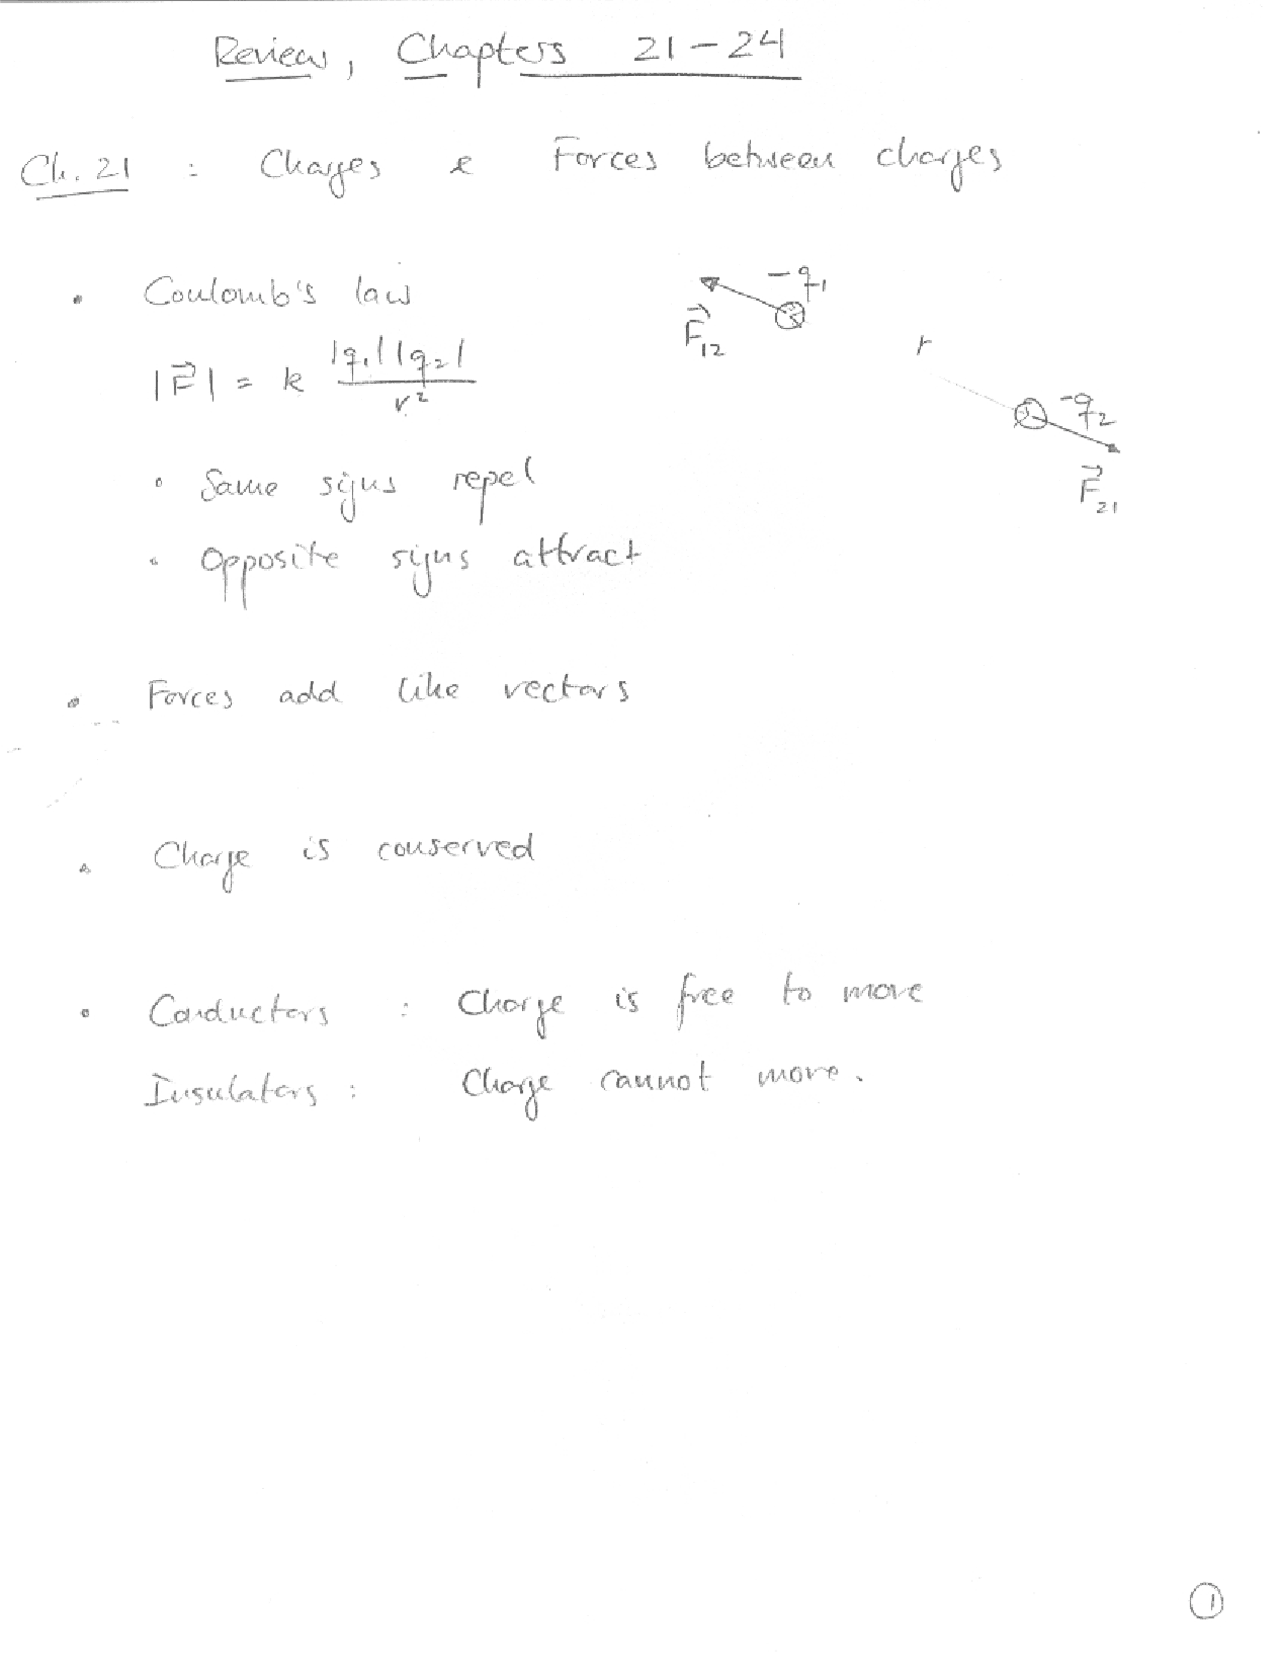 Review, Chapters 21-24
Ch. 21 : Charges & Forces between charges
• Coulomb's law
|F⃗| = k |q₁||q₂| / r²
-q₁
F⃗₁₂
r
-q₂
F⃗₂₁
• Same signs repel
• Opposite signs attract
• Forces add like vectors
• Charge is conserved
• Conductors : Charge is free to move
Insulators : Charge cannot move.
1